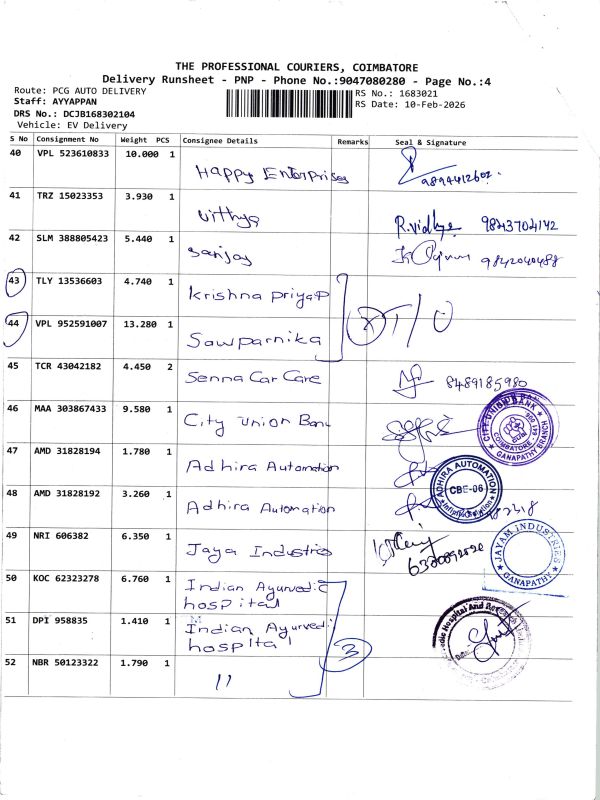 THE PROFESSIONAL COURIERS, COIMBATORE
Delivery Runsheet - PNP - Phone No.:9047080280 - Page No.:4
Route: PCG AUTO DELIVERY
RS No.: 1683021
Staff: AYYAPPAN
RS Date: 10-Feb-2026
DRS No.: DCJB168302104
Vehicle: EV Delivery
S No Consignment No Weight PCS Consignee Details Remarks Seal & Signature
40 VPL 523610833 10.000 1 Happy Enterprises 9894412602.
41 TRZ 15023353 3.930 1 Vithya R.vidhya 9843704142
42 SLM 388805423 5.440 1 Sanjay 9842040488
43 TLY 13536603 4.740 1 Krishna priya P
44 VPL 952591007 13.280 1 Sowparnika
45 TCR 43042182 4.450 2 Senna Car Care 8489185980
46 MAA 303867433 9.580 1 City Union Bank
CITY UNION BANK
COIMBATORE - 641 006
GANAPATHY BRANCH
47 AMD 31828194 1.780 1 Adhira Automation
ADHIRA AUTOMATION
CBE-06
48 AMD 31828192 3.260 1 Adhira Automation
49 NRI 606382 6.350 1 Jaya Industries
JAYAM INDUSTRIES
GANAPATHY
50 KOC 62323278 6.760 1 Indian Ayurvedic
hospital
51 DPI 958835 1.410 1 Indian Ayurvedi
hospital
3
52 NBR 50123322 1.790 1 11